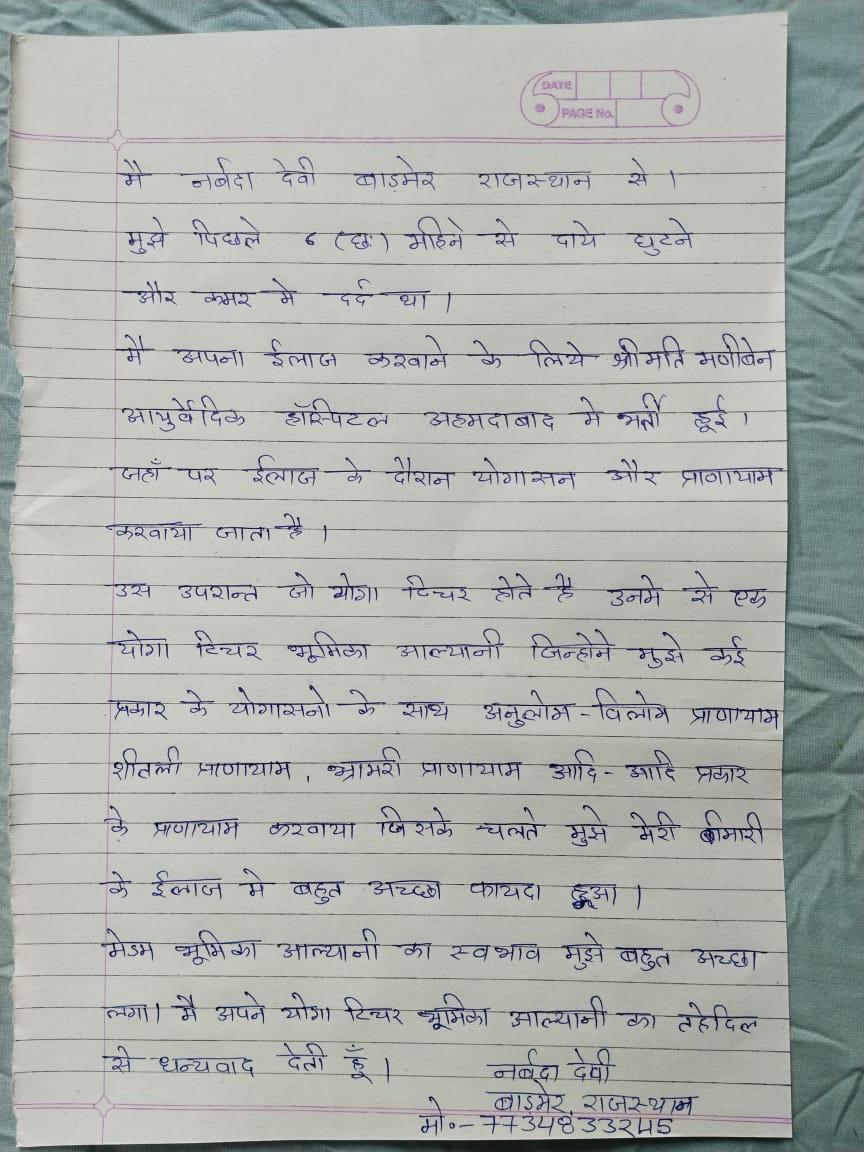 DATE
PAGE No.
मै नर्बदा देवी बाड़मेर राजस्थान से ।
मुझे पिछले ६ (छः) महिने से दाये घुटने
और कमर मे दर्द था ।
मै अपना ईलाज करवाने के लिये श्रीमति मणीबेन
आयुर्वेदिक हॉस्पिटल अहमदाबाद मे भर्ती हूई ।
जहाँ पर ईलाज के दौरान योगासन और प्राणायाम
करवाया जाता है ।
उस उपरान्त जो योगा टिचर होते है उनमे से एक
योगा टिचर भूमिका आल्यानी जिन्होने मुझे कई
प्रकार के योगासनो के साथ अनुलोम - विलोम प्राणायाम
शीतली प्राणायाम , भ्रामरी प्राणायाम आदि - आदि प्रकार
के प्राणायाम करवाया जिसके चलते मुझे मेरी बीमारी
के ईलाज मे बहुत अच्छा फायदा हूआ ।
मेडम भूमिका आल्यानी का स्वभाव मुझे बहुत अच्छा
लगा। मै अपने योगा टिचर भूमिका आल्यानी का तहेदिल
से धन्यवाद देती हूँ ।
नर्बदा देवी
बाड़मेर, राजस्थान
मो०- 7734833245